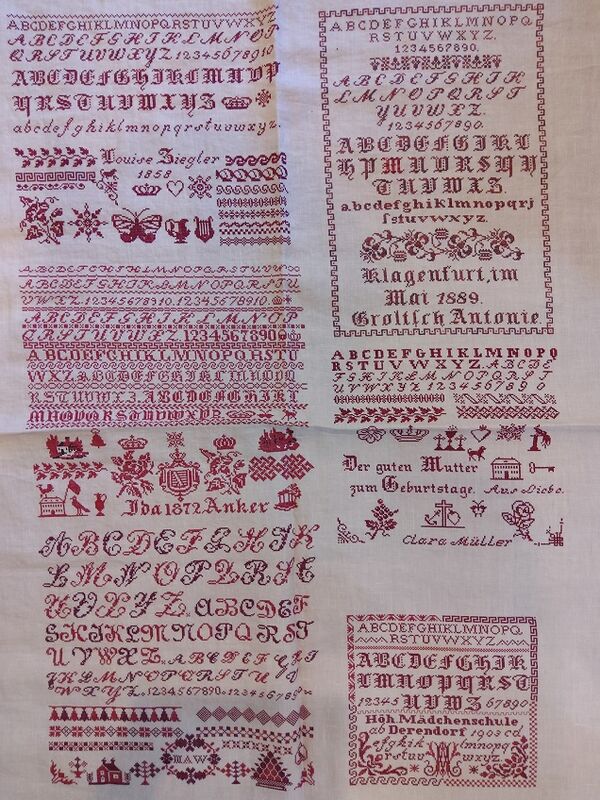 ABCDEFGHIJKLMNOPQRSTUVWXYZ
ABCDEFGHIJKLMNOP
QRSTUVWXYZ 12345678910
ABCDEFGHIJKLMNOP
QRSTUVWXYZ
abcdefghiklmnopqrstuvwxyz.
Louise Ziegler
1858
ABCDEFGHIJKLMNOPQRSTUV
ABCDEFGHIJKLMNOPQRST
UVWXYZ. 12345678910. 1234567890.
ABCDEFGHIJKLMNOP
QRSTUVWXYZ 1234567890
ABCDEFGHIKLMNOPQRSTU
WXZ
Ida 1872 Anker
ABCDEFGHIK
LMNOPQRST
UVXYZ. ABCDEF
GHIKLMNOPQRST
UVWXZ. ABCDEFG
IKLMNOPQRSTUV
WXYZ. 1234567890. 1234567890
MAW
ABCDEFGHIKLMNOPQ
RSTUVWXYZ.
1234567890.
ABCDEFGHIK
LMNOPQRST
YUVWXZ.
1234567890.
ABCDEFGHIKL
NPMURSQ
TUVWXZ.
abcdefghiklmnopqrj
ſstuvwxyz.
Klagenfurt, im
Mai 1889.
Groltſch Antonie.
ABCDEFGHIKLMNOPQ
RSTUVWXYZ. ABCDE
FGHIKLMNOPQRSTUV
WXYZ 1234567890
Der guten Mutter
zum Geburtstage. Aus Liebe.
Clara Müller
ABCDEFGHIKLMNOPQ
RSTUVWXYZ
ABCDEFGHIK
LMNOPQRST
12345 UVWZ 67890
Höh. Mädchenschule
ab Derendorf 1903 cd
efghik lmnopq
rstuv wxyz.